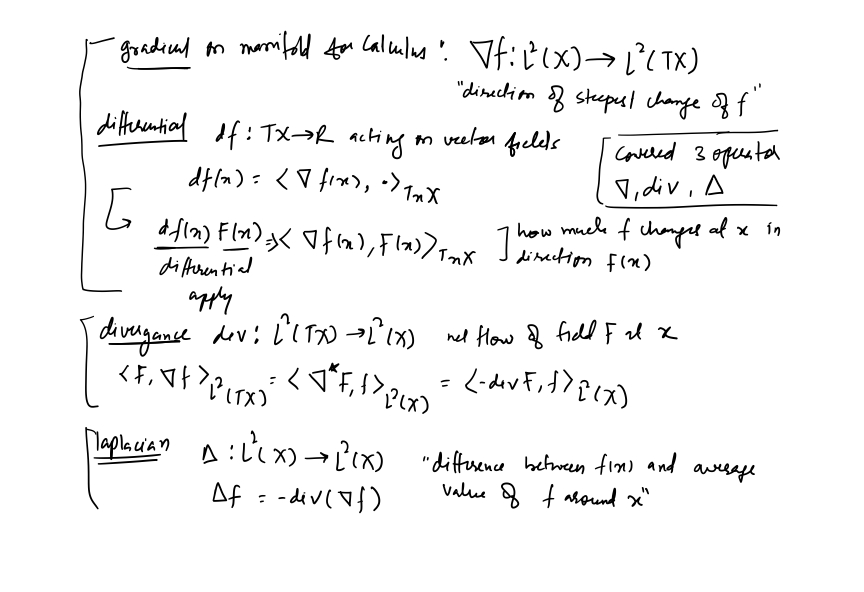 gradient on manifold for calculus : ∇f : L²(X) → L²(TX)
"direction of steepest change of f"
differential df : TX → R acting on vector fields
df(x) = < ∇ f(x), · >_TxX
covered 3 operator
∇, div, Δ
df(x) F(x) => < ∇ f(x), F(x) >_TxX
how much f changes at x in
direction F(x)
differential
apply
divergance div : L²(TX) → L²(X) net flow of field F at x
< F, ∇f >_L²(TX) = < ∇*F, f >_L²(X) = < -div F, f >_L²(X)
laplacian Δ : L²(X) → L²(X) "difference between f(x) and average
Δf = -div(∇f) value of f around x"